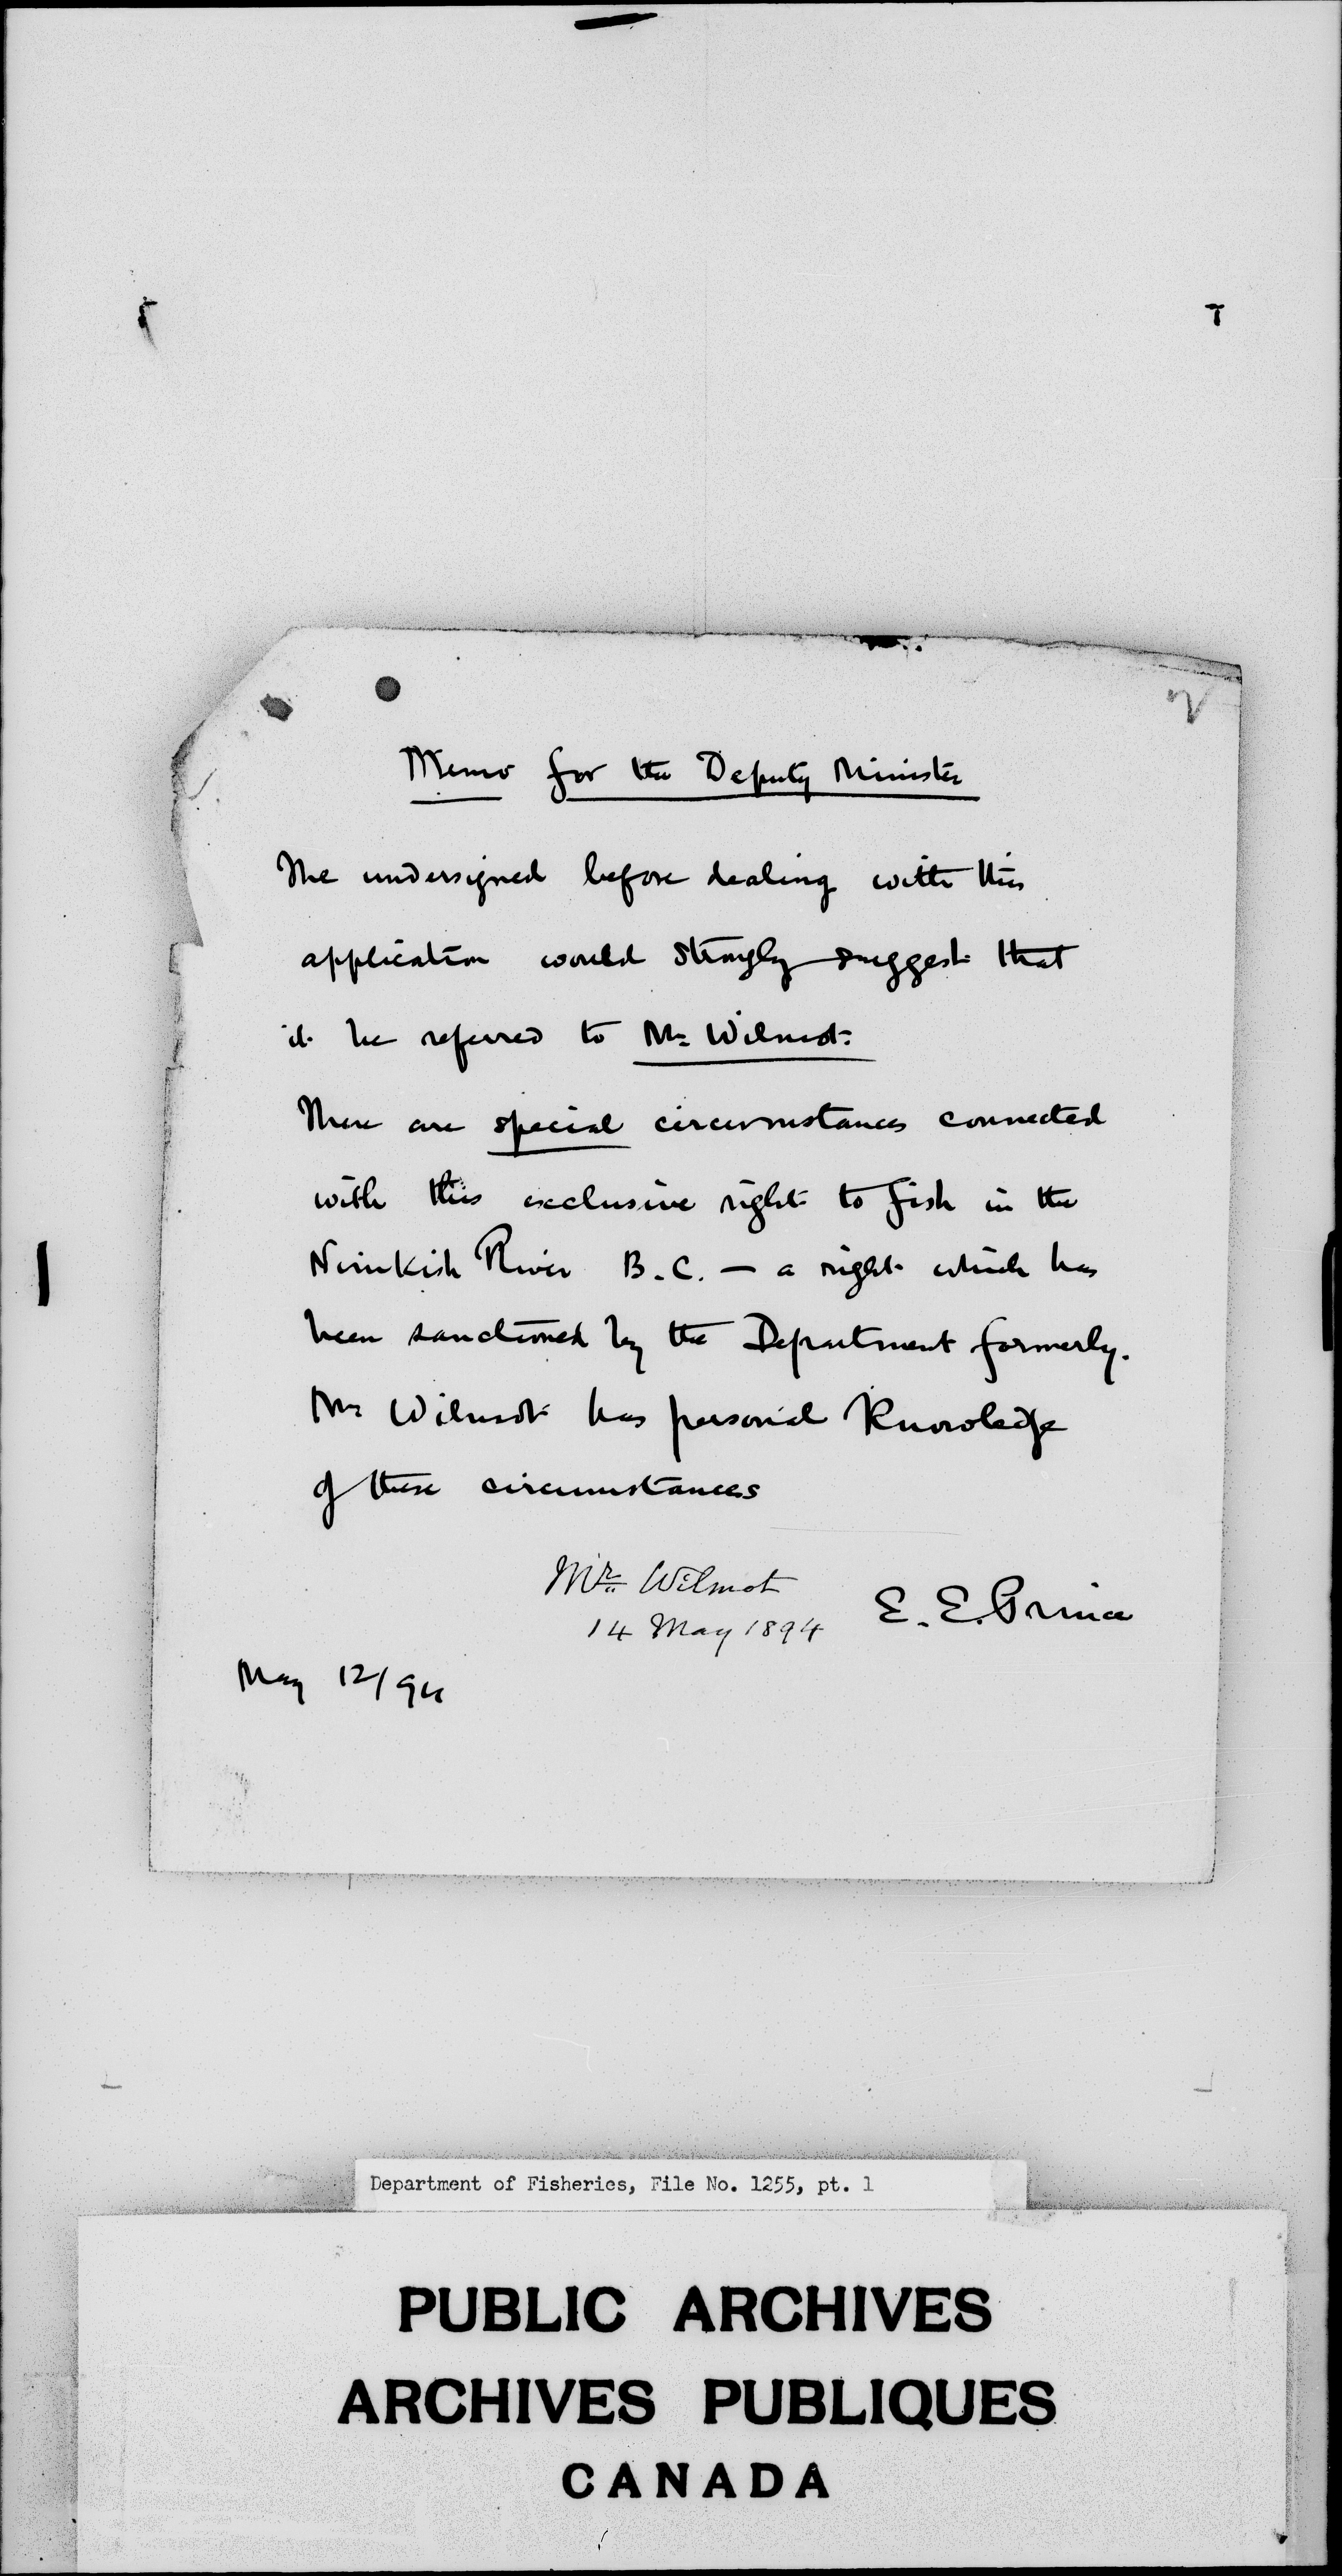 2
Memo for the Deputy Minister
The undersigned before dealing with this
application would strongly suggest that
it be referred to Mr Wilmot.
There are special circumstances connected
with this exclusive right to fish in the
Nimkish River B.C. — a right which has
been sanctioned by the Department formerly.
Mr Wilmot has personal knowledge
of these circumstances
Mr. Wilmot
14 May 1894
E. E. Prince
May 12/94
Department of Fisheries, File No. 1255, pt. 1
PUBLIC ARCHIVES
ARCHIVES PUBLIQUES
CANADA